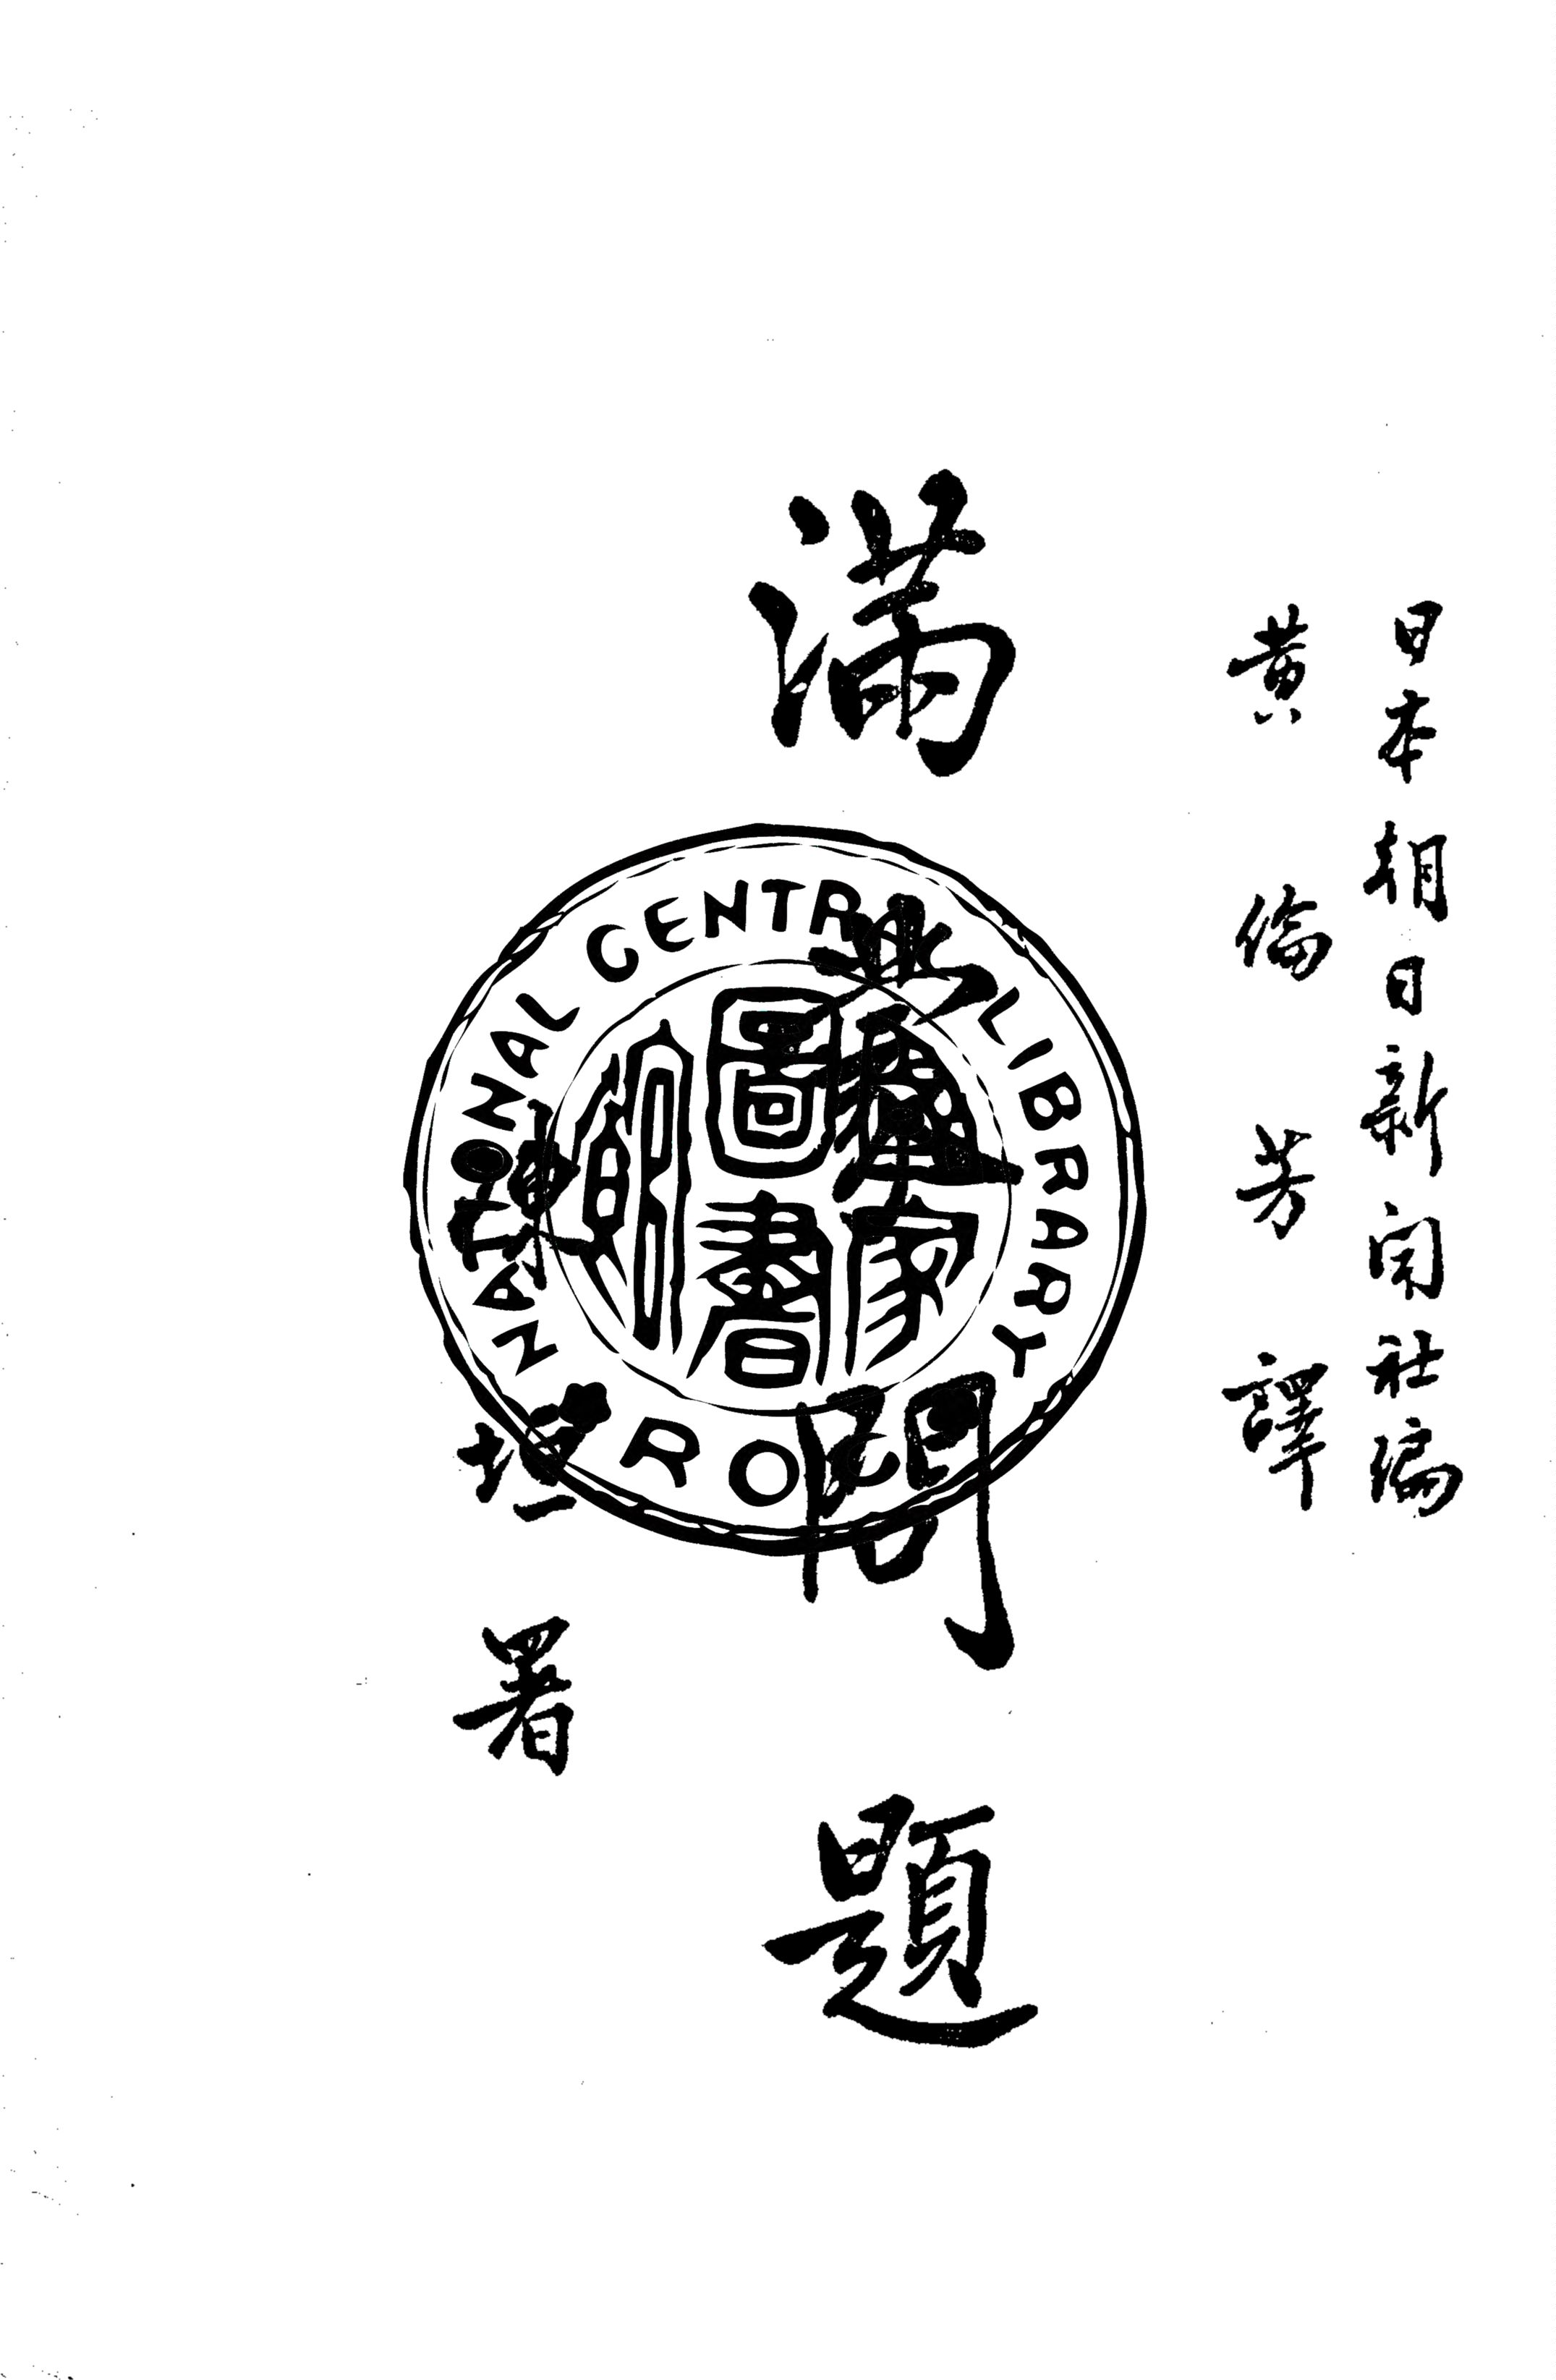 日本朝日新聞社編
黃僑芳譯
滿蒙問題
陳垣署
NATIONAL CENTRAL LIBRARY
R O C
國家圖書館